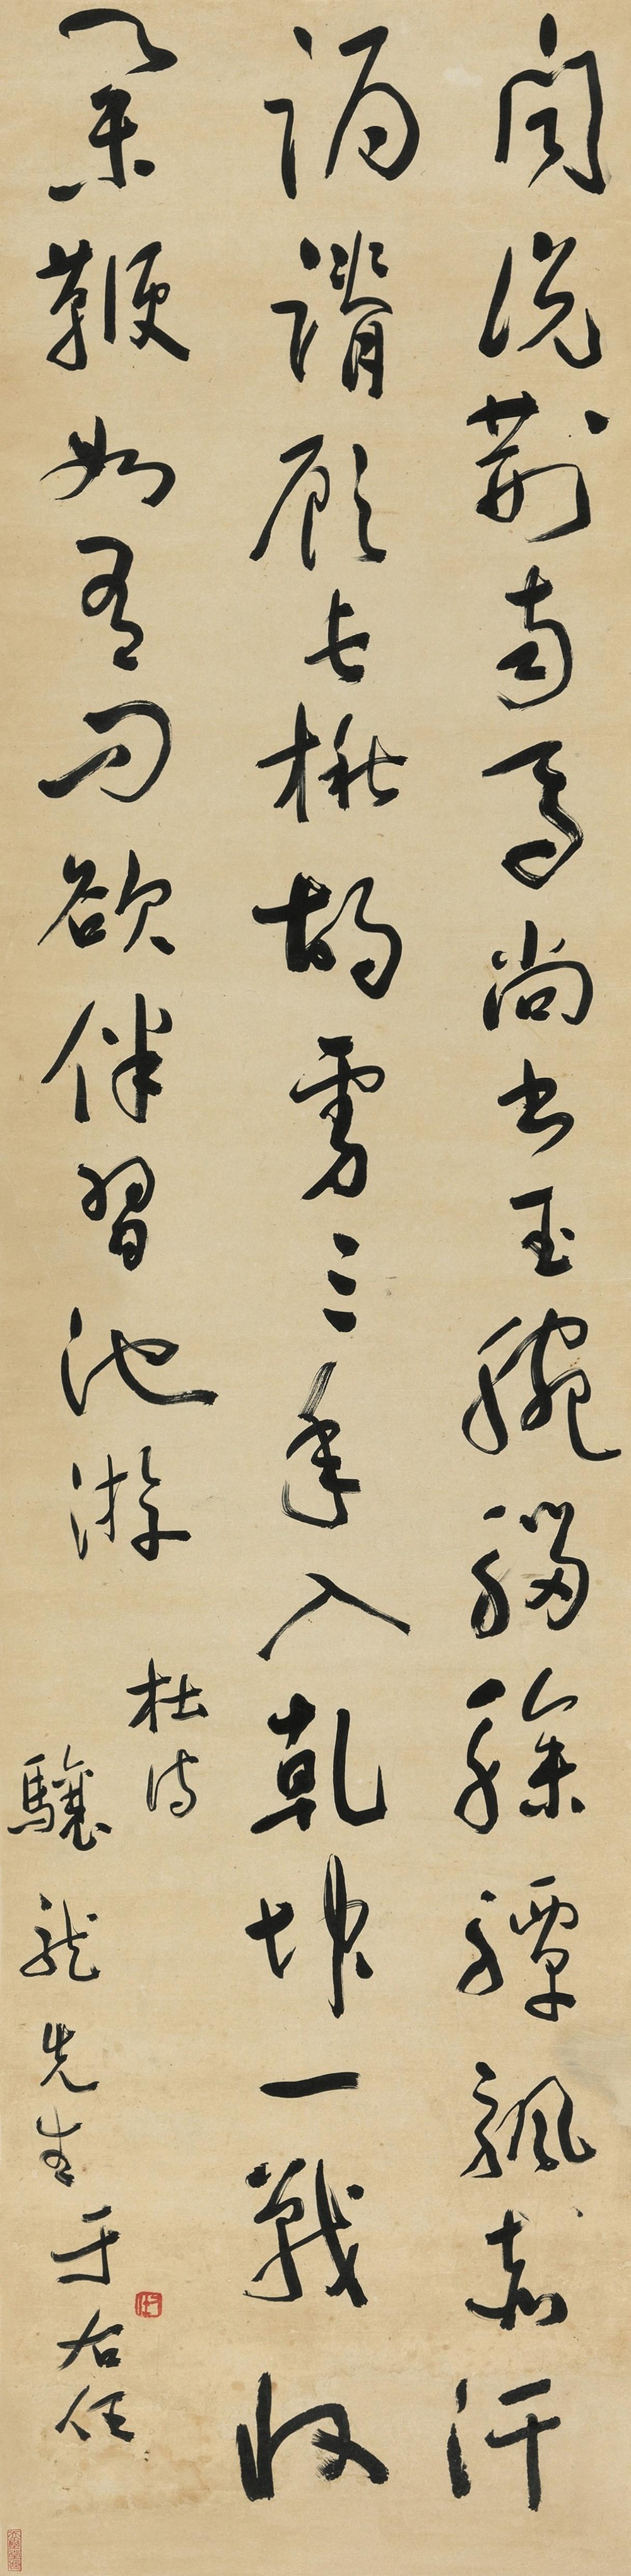 聞說荊南馬尚書玉腕騮驂驔飄赤汗
跼蹐顧長楸胡虜三年入乾坤一戰收
舉鞭如有問欲伴習池游
杜詩
驤龍先生 于右任